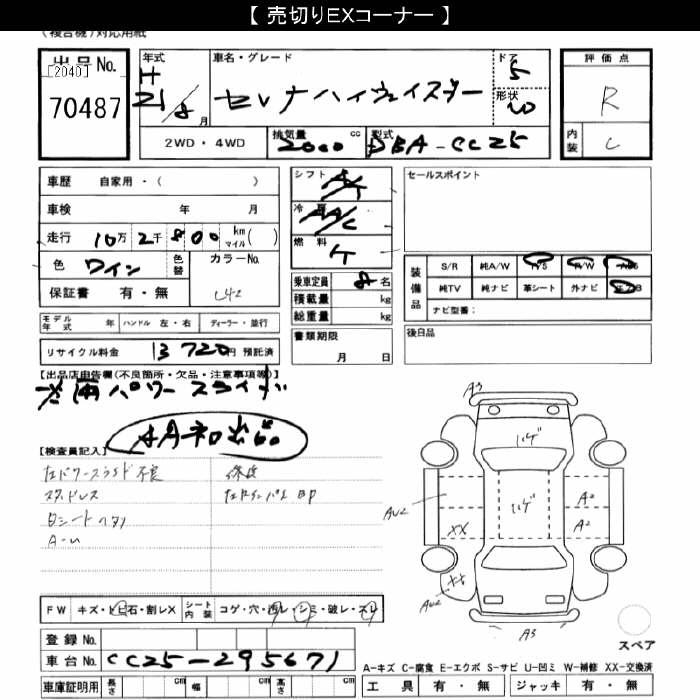 【 売切りEXコーナー 】
(複合機)対応用紙
出品No.
[2040]
70487
年式
H
21/8月
車名・グレード
セレナハイウェイスター
ドア
5
形状
W
2WD・4WD
排気量
2000
cc
型式
DBA-CC25
評価点
R
内装
C
車歴 自家用・( )
車検 年 月
走行 10万2千800 km マイル( )
色 ワイン 色替 カラーNo.
保証書 有・無
モデル年式 年 ハンドル 左・右 ディーラー・並行
リサイクル料金 13720円 預託済
シフト
冷房 AA/C
燃料
乗車定員 8名
積載量 kg
総重量 kg
書類期限
月 日
セールスポイント
装備品
S/R 純A/W P/S P/W ABS
純TV 純ナビ 革シート 外ナビ エアB
ナビ型番:
後日品
【出品店申告欄(不良箇所・欠品・注意事項等)】
両パワースライド
4月初出品
【検査員記入】
左パワースライド不良
スタッドレス
修復
FW キズ・トビ石・割レX シート内装 コゲ・穴・切レ・シミ・破レ・スレ
登録No.
車台No. CC25-295671
車庫証明用 長さ cm 幅 cm 高さ cm
A3
ハゲ
ハゲ
AU2
XX
A2
A2
AU2
A3
スペア
A-キズ C-腐食 E-エクボ S-サビ U-凹ミ W-補修 XX-交換済
工具 有・無 ジャッキ 有・無